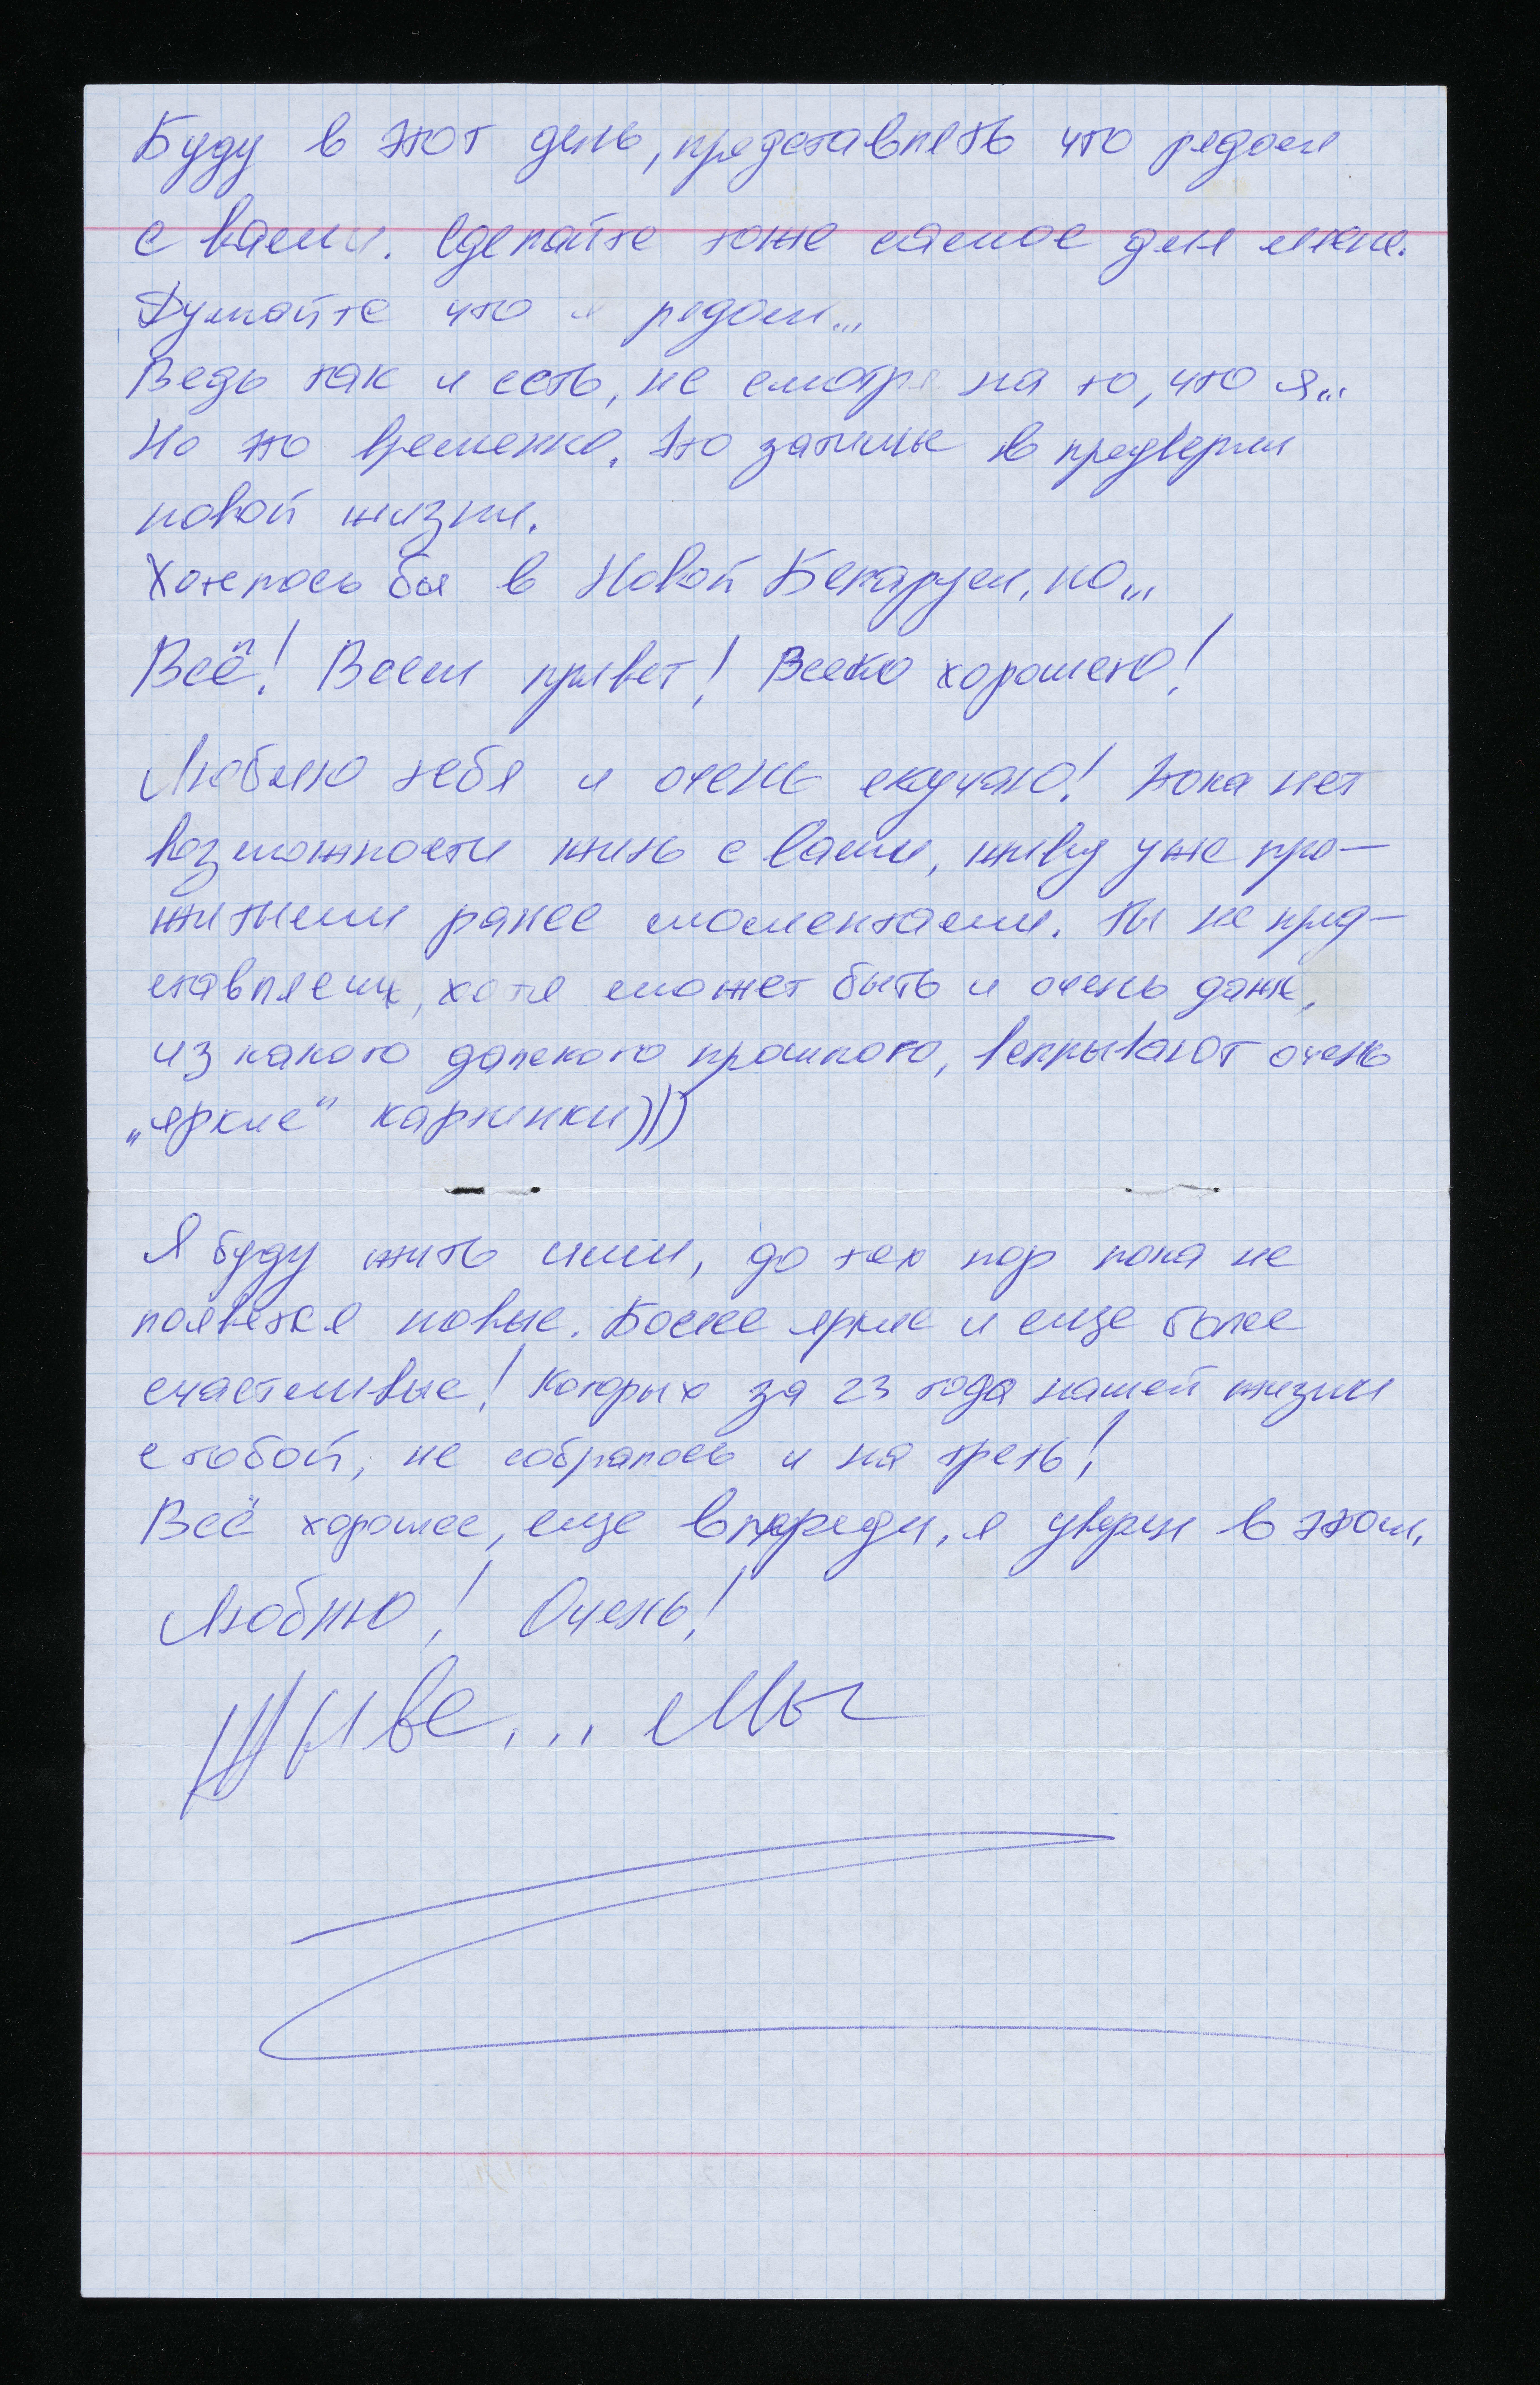 Буду в этот день, представлять что рядом
с вами. Сделайте тоже самое для меня.
Думайте что я рядом...
Ведь так и есть, не смотря на то, что я...
Но это временно. Это затишье в предверии
новой жизни.
Хотелось бы в Новой Беларуси, но...
Всё! Всем привет! Всего хорошего!
Люблю тебя и очень скучаю! Пока нет
возможности жить с вами, живу уже про-
житыми ранее моментами. Ты не пред-
ставляешь, хотя может быть и очень даже,
из какого далекого прошлого, всплывают очень
„яркие“ картинки)))
Я буду жить ими, до тех пор пока не
появятся новые. Более яркие и еще более
счастливые! Которых за 23 года нашей жизни
с тобой, не собралось и на треть!
Всё хорошее, еще впереди, я уверен в этом.
Люблю! Очень!
Жыве... Мы